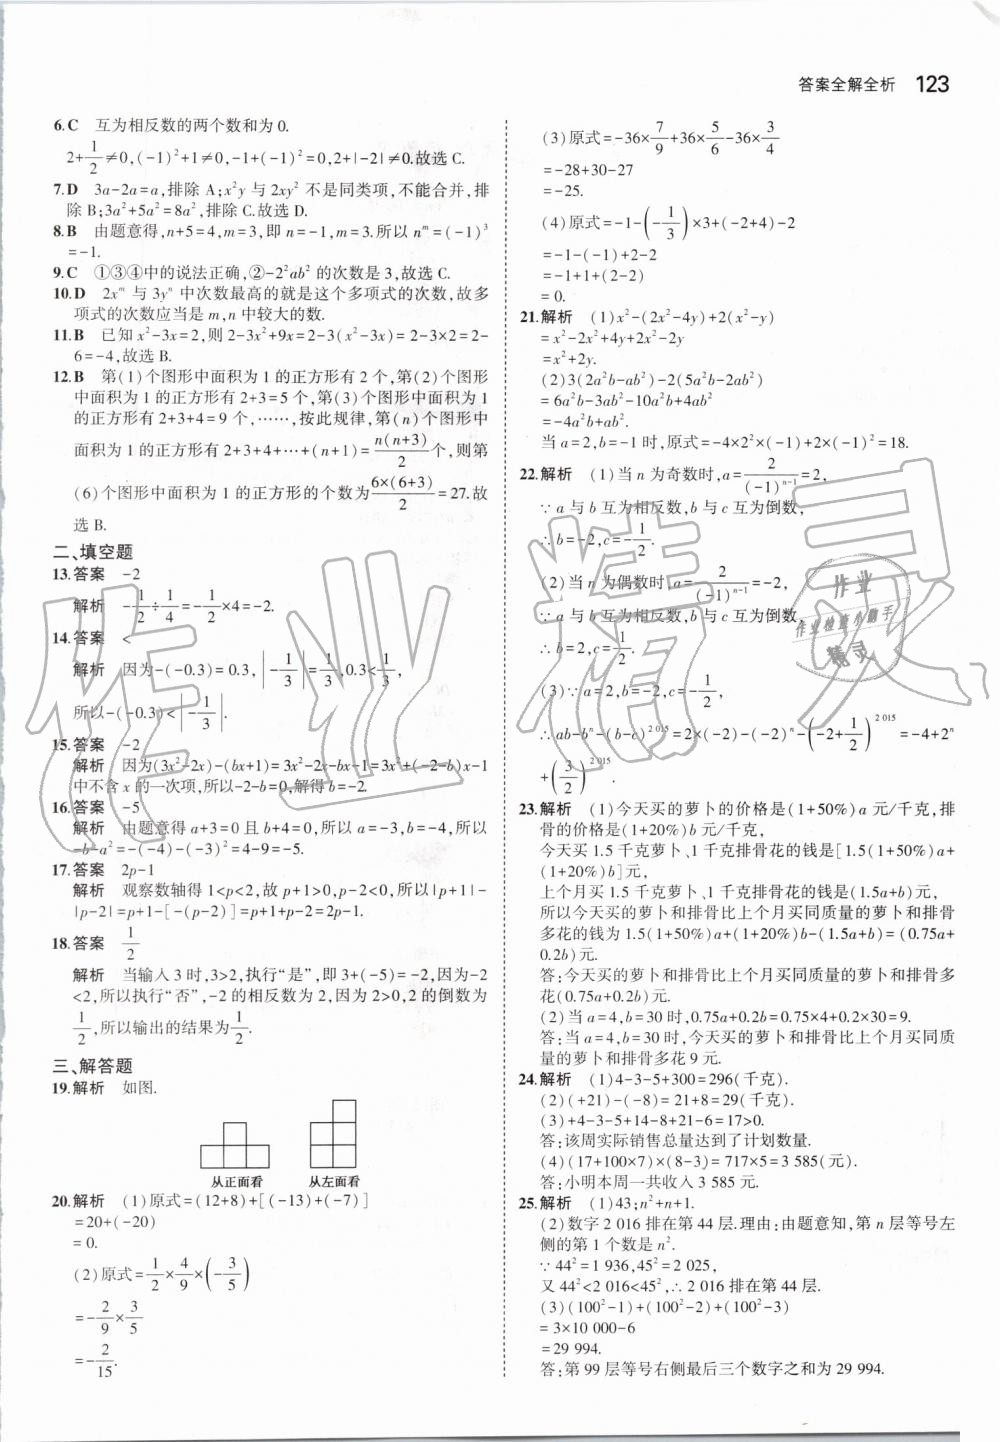 答案全解全析 123
6.C 互为相反数的两个数和为 0.
2+1/2≠0,(-1)²+1≠0,-1+(-1)²=0,2+|-2|≠0.故选 C.
7.D 3a-2a=a,排除 A;x²y 与 2xy² 不是同类项,不能合并,排
除 B;3a²+5a²=8a²,排除 C.故选 D.
8.B 由题意得,n+5=4,m=3,即 n=-1,m=3.所以 nᵐ=(-1)³
=-1.
9.C ①③④中的说法正确,②-2²ab² 的次数是 3,故选 C.
10.D 2xᵐ 与 3yⁿ 中次数最高的就是这个多项式的次数,故多
项式的次数应当是 m,n 中较大的数.
11.B 已知 x²-3x=2,则 2-3x²+9x=2-3(x²-3x)=2-3×2=2-
6=-4,故选 B.
12.B 第(1)个图形中面积为 1 的正方形有 2 个,第(2)个图形
中面积为 1 的正方形有 2+3=5 个,第(3)个图形中面积为 1
的正方形有 2+3+4=9 个,……,按此规律,第(n)个图形中
面积为 1 的正方形有 2+3+4+…+(n+1)=n(n+3)/2个,则第
(6)个图形中面积为 1 的正方形的个数为6×(6+3)/2=27.故
选 B.
二、填空题
13.答案 -2
解析 -1/2÷1/4=-1/2×4=-2.
14.答案 <
解析 因为-(-0.3)=0.3,|-1/3|=1/3,0.3<1/3,
所以-(-0.3)<|-1/3|.
15.答案 -2
解析 因为(3x²-2x)-(bx+1)=3x²-2x-bx-1=3x²+(-2-b)x-1
中不含 x 的一次项,所以-2-b=0,解得 b=-2.
16.答案 -5
解析 由题意得 a+3=0 且 b+4=0,所以 a=-3,b=-4,所以
-b-a²=-(-4)-(-3)²=4-9=-5.
17.答案 2p-1
解析 观察数轴得 1<p<2,故 p+1>0,p-2<0.所以|p+1|-
|p-2|=p+1-[-(p-2)]=p+1+p-2=2p-1.
18.答案 1/2
解析 当输入 3 时,3>2,执行“是”,即 3+(-5)=-2,因为-2
<2,所以执行“否”,-2 的相反数为 2,因为 2>0,2 的倒数为
1/2,所以输出的结果为1/2.
三、解答题
19.解析 如图.
从正面看 从左面看
20.解析 (1)原式=(12+8)+[(-13)+(-7)]
=20+(-20)
=0.
(2)原式=1/2×4/9×(-3/5)
=-2/9×3/5
=-2/15.
(3)原式=-36×7/9+36×5/6-36×3/4
=-28+30-27
=-25.
(4)原式=-1-(-1/3)×3+(-2+4)-2
=-1-(-1)+2-2
=-1+1+(2-2)
=0.
21.解析 (1)x²-(2x²-4y)+2(x²-y)
=x²-2x²+4y+2x²-2y
=x²+2y.
(2)3(2a²b-ab²)-2(5a²b-2ab²)
=6a²b-3ab²-10a²b+4ab²
=-4a²b+ab².
当 a=2,b=-1 时,原式=-4×2²×(-1)+2×(-1)²=18.
22.解析 (1)当 n 为奇数时,a=2/(-1)ⁿ⁻¹=2,
∵a 与 b 互为相反数,b 与 c 互为倒数,
∴b=-2,c=-1/2.
(2)当 n 为偶数时,a=2/(-1)ⁿ⁻¹=-2,
∵a 与 b 互为相反数,b 与 c 互为倒数,
∴b=2,c=1/2.
(3)∵a=2,b=-2,c=-1/2,
∴ab-bⁿ-(b-c)²⁰¹⁵=2×(-2)-(-2)ⁿ-(-2+1/2)²⁰¹⁵=-4+2ⁿ
+(3/2)²⁰¹⁵.
23.解析 (1)今天买的萝卜的价格是(1+50%)a 元/千克,排
骨的价格是(1+20%)b 元/千克,
今天买 1.5 千克萝卜、1 千克排骨花的钱是[1.5(1+50%)a+
(1+20%)b]元,
上个月买 1.5 千克萝卜、1 千克排骨花的钱是(1.5a+b)元,
所以今天买的萝卜和排骨比上个月买同质量的萝卜和排骨
多花的钱为 1.5(1+50%)a+(1+20%)b-(1.5a+b)=(0.75a+
0.2b)元.
答:今天买的萝卜和排骨比上个月买同质量的萝卜和排骨多
花(0.75a+0.2b)元.
(2)当 a=4,b=30 时,0.75a+0.2b=0.75×4+0.2×30=9.
答:当 a=4,b=30 时,今天买的萝卜和排骨比上个月买同质
量的萝卜和排骨多花 9 元.
24.解析 (1)4-3-5+300=296(千克).
(2)(+21)-(-8)=21+8=29(千克).
(3)+4-3-5+14-8+21-6=17>0.
答:该周实际销售总量达到了计划数量.
(4)(17+100×7)×(8-3)=717×5=3 585(元).
答:小明本周一共收入 3 585 元.
25.解析 (1)43;n²+n+1.
(2)数字 2 016 排在第 44 层.理由:由题意知,第 n 层等号左
侧的第 1 个数是 n².
∵44²=1 936,45²=2 025,
又 44²<2 016<45²,∴2 016 排在第 44 层.
(3)(100²-1)+(100²-2)+(100²-3)
=3×10 000-6
=29 994.
答:第 99 层等号右侧最后三个数字之和为 29 994.
作业精灵
作业
作业检查小助手
精灵